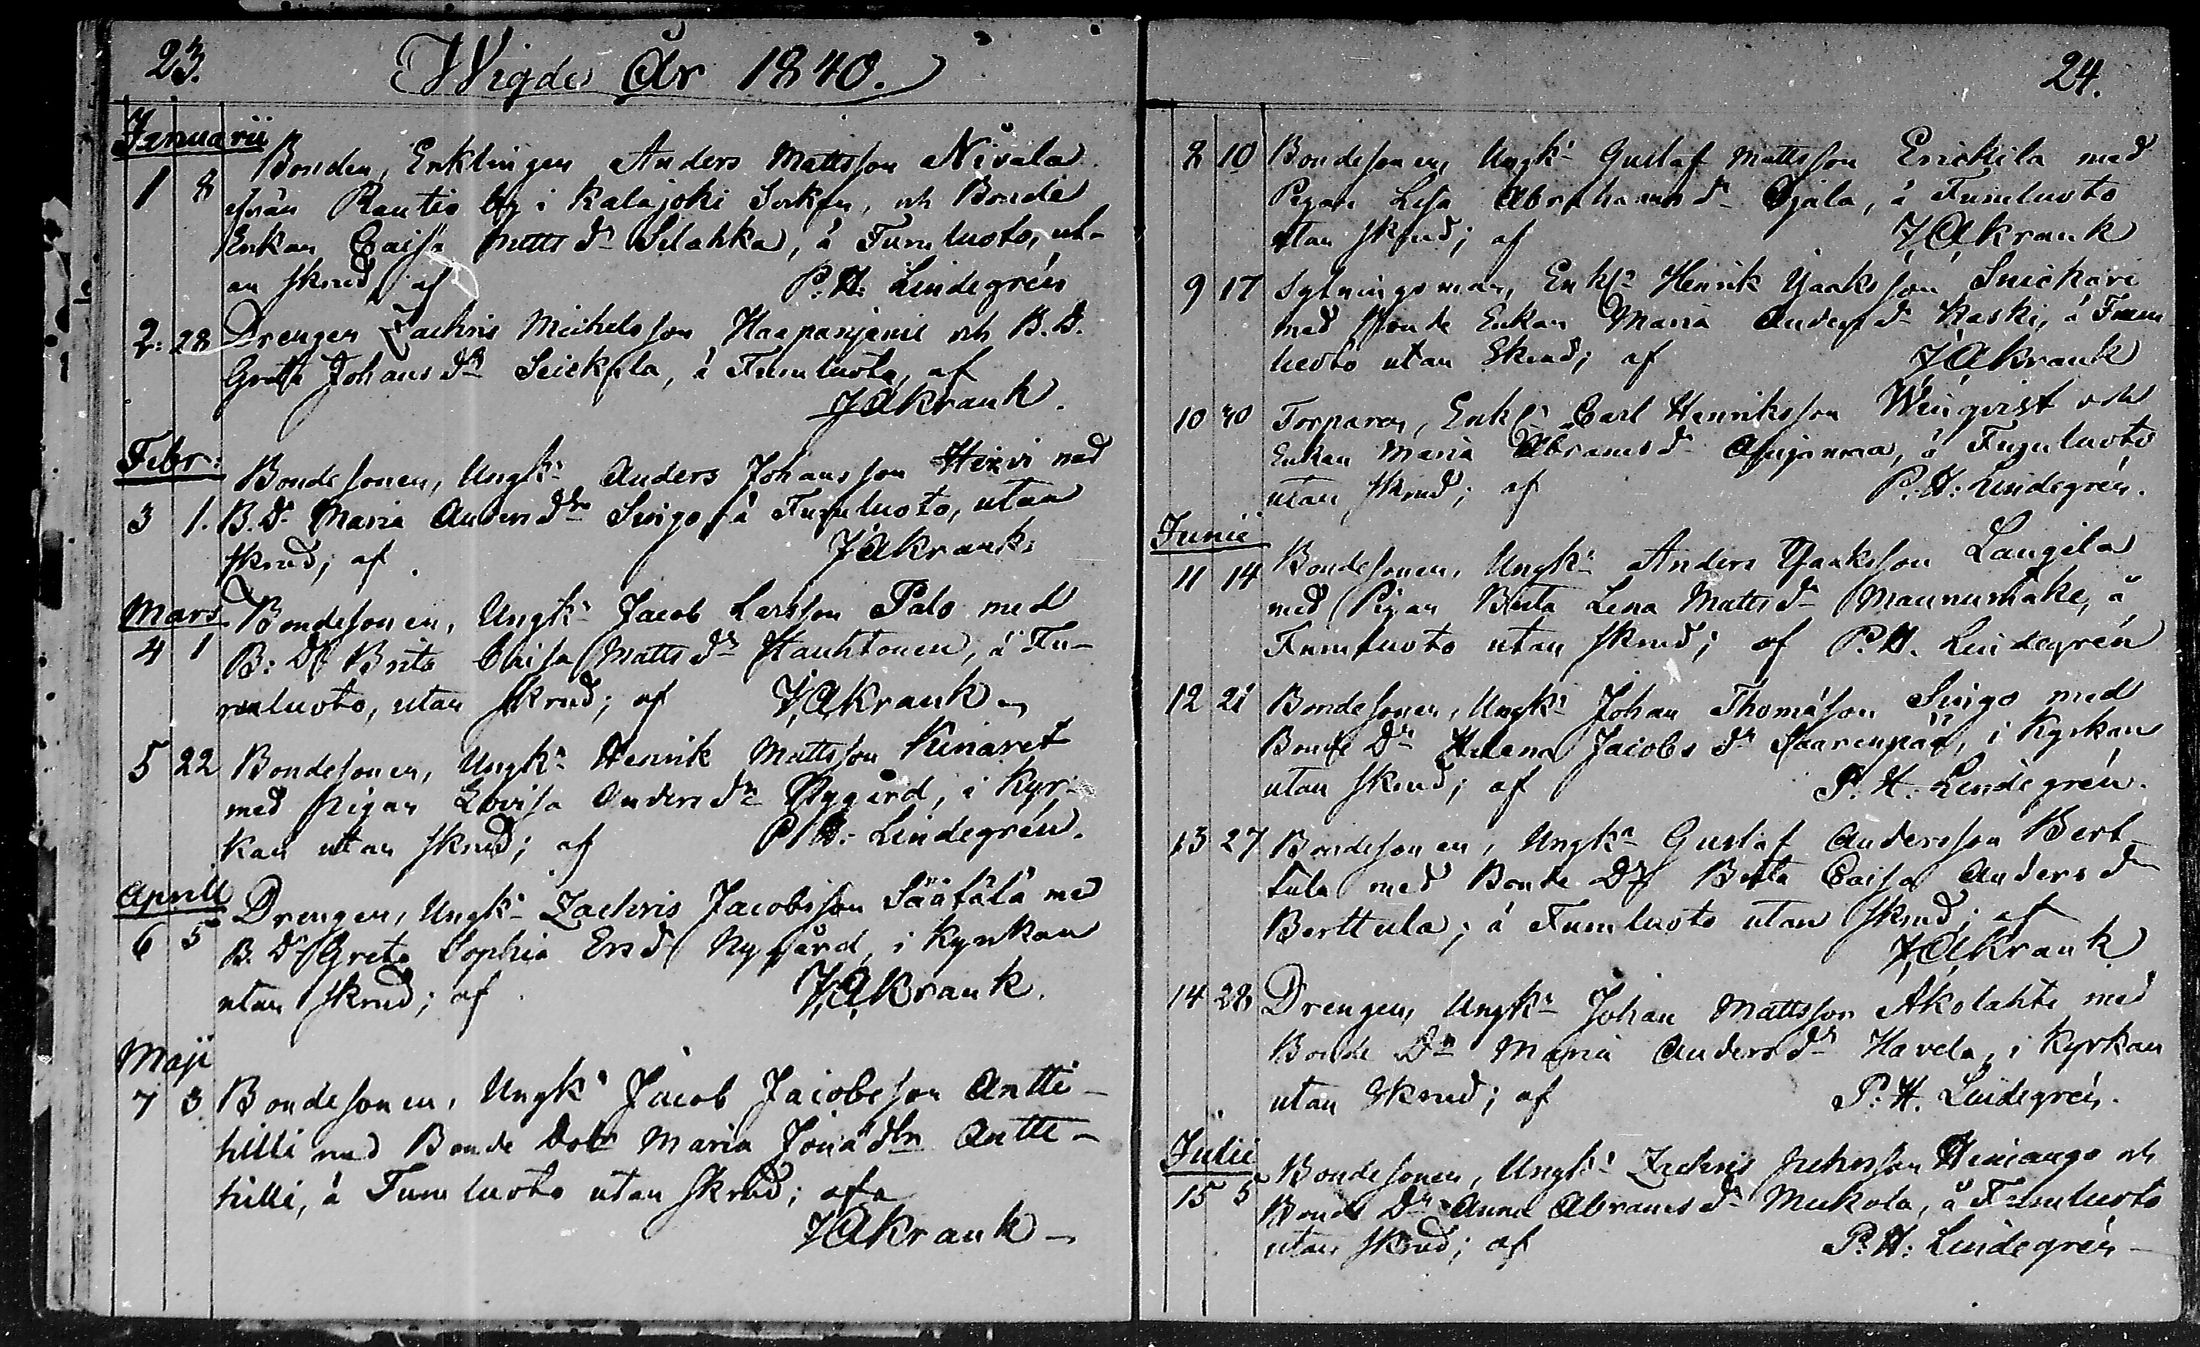 23.
Wigde År 1840.
Januarii
Bonden, Enklingen Anders Mattsson Nivala
1 8 från Rautio by i Kalajoki Sokn, och Bonde
Enkan Caisa Matts dr Selahka, å Fumluoto, ut-
an skrud, af P. H. Lindegrén
2. 28 Drengen Zachris Michelsson Haapaniemi och B. D.
Greta Johans dr Seickala, å Fumluoto, af
J A Krank.
Febr:
Bondesonen, Ungk: Anders Johansson Hirvi med
3 1. B. Dr Maria Anders dr Suigo å Fumluoto, utan
skrud; af J A Krank.
Mars Bondesonen, Ungk: Jacob Larsson Palo med
4 1 B: Dr Brita Caisa Matts dr Hauhtonen, å Fu-
mluoto, utan skrud; af J A Krank
5 22 Bondesonen, Ungk: Henrik Mattsson Kinaret
med pigan Lovisa Anders dr Nygård, i Kyr-
kan utan skrud; af P. H: Lindegrén.
Aprill Drengen, Ungk: Zachris Jacobsson Säätälä med
6 5 B. Dr Greta Sophia Ers dr Nygård, i Kyrkan
utan skrud; af J A Krank.
Maji
7 3 Bondesonen, Ungk: Jacob Jacobsson Antti-
hilli med Bonde Dotr Maria Jona dtr Antti-
hilli, å Fumluoto utan skrud; af
J A Krank
24.
8 10 Bondesonen, Ungk: Gustaf Mattsson Erickila med
Pigan Lisa Abrahams dr Ojala, å Fumluoto
utan skrud; af J A Krank
9 17 Sytningsman, Enkl: Henrik Isaksson Snickari
med Bonde Enkan Maria Anders dr Kaski, å Fum
luoto utan skrud; af J A Krank
10 40 Torparen, Enkl: Carl Henriksson Winqvist och
Enkan Maria Abrams dr, å Fumluoto
utan skrud; af P. H: Lindegrén.
Junii
11 14 Bondesonen, Ungk: Anders Isaksson Langila
med Pigan Brita Lena Matts dr Maunumäke, å
Fumluoto utan skrud; af P. H. Lindegrén
12 21 Bondesonen, Ungk: Johan Thomasson Suigo med
Bonde Dr Helena Jacobs dr Saarenpää, i Kyrkan
utan skrud; af P. H. Lindegrén.
13 27 Bondesonen, Ungk: Gustaf Andersson Bert-
tula med Bonde Dr Brita Caisa Anders dr
Berttula; å Fumluoto utan skrud; af
J A Krank
14 28 Drengen, Ungk: Johan Mattsson Akolahti med
Bonde Dr Maria Anders dr Havela, i Kyrkan
utan skrud; af P. H. Lindegrén.
Julii Bondesonen, Ungk: Zachris Hiniango och
15 5 Bonde Dr Anna Abrams dr Mukola, å Fumluoto
utan skrud; af P. H: Lindegrén